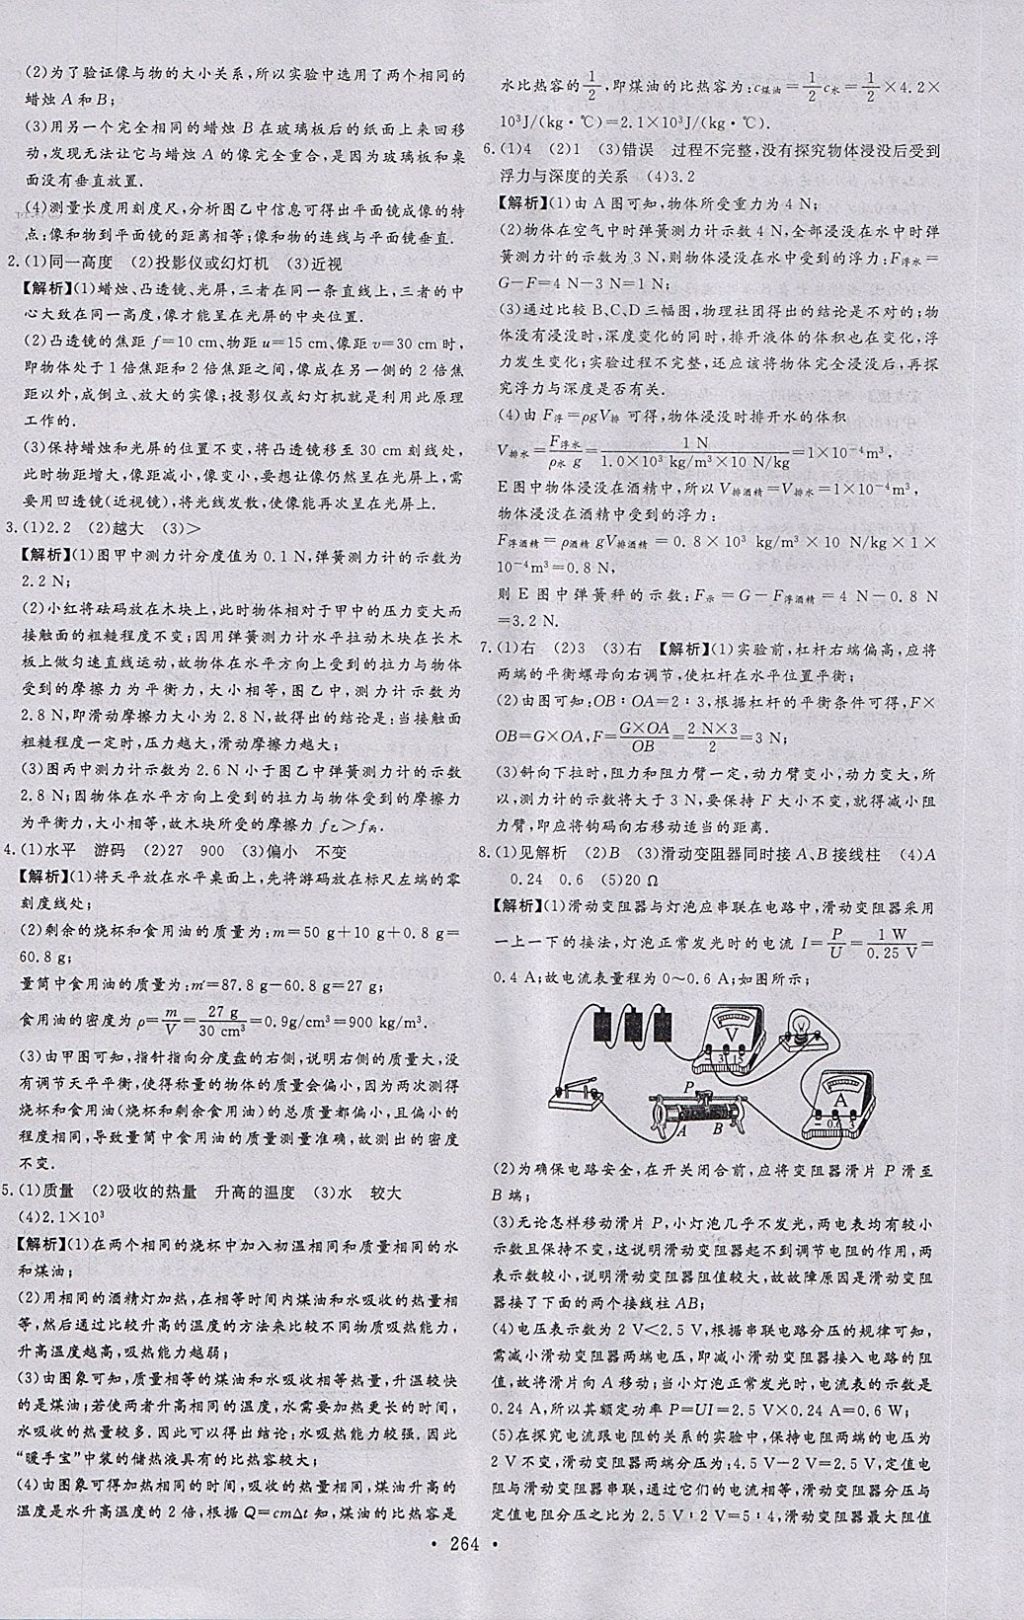 (2)为了验证像与物的大小关系,所以实验中选用了两个相同的
蜡烛 A 和 B;
(3)用另一个完全相同的蜡烛 B 在玻璃板后的纸面上来回移
动,发现无法让它与蜡烛 A 的像完全重合,是因为玻璃板和桌
面没有垂直放置.
(4)测量长度用刻度尺,分析图乙中信息可得出平面镜成像的特
点:像和物到平面镜的距离相等;像和物的连线与平面镜垂直.
2.(1)同一高度 (2)投影仪或幻灯机 (3)近视
【解析】(1)蜡烛、凸透镜、光屏,三者在同一条直线上,三者的中
心大致在同一高度,像才能呈在光屏的中央位置.
(2)凸透镜的焦距 f=10 cm、物距 u=15 cm、像距 v=30 cm 时,
即物体处于 1 倍焦距和 2 倍焦距之间,像成在另一侧的 2 倍焦
距以外,成倒立、放大的实像;投影仪或幻灯机就是利用此原理
工作的.
(3)保持蜡烛和光屏的位置不变,将凸透镜移至 30 cm 刻线处,
此时物距增大,像距减小,像变小,要想让像仍然呈在光屏,需
要用凹透镜(近视镜),将光线发散,使像能再次呈在光屏上.
3.(1)2.2 (2)越大 (3)>
【解析】(1)图甲中测力计分度值为 0.1 N,弹簧测力计的示数为
2.2 N;
(2)小红将砝码放在木块上,此时物体相对于甲中的压力变大而
接触面的粗糙程度不变;因用弹簧测力计水平拉动木块在长木
板上做匀速直线运动,故物体在水平方向上受到的拉力与物体
受到的摩擦力为平衡力,大小相等,图乙中,测力计示数为
2.8 N,即滑动摩擦力大小为 2.8 N,故得出的结论是:当接触面
粗糙程度一定时,压力越大,滑动摩擦力越大;
(3)图丙中测力计示数为 2.6 N 小于图乙中弹簧测力计的示数
2.8 N;因物体在水平方向上受到的拉力与物体受到的摩擦力
为平衡力,大小相等,故木块所受的摩擦力 f乙>f丙.
4.(1)水平 游码 (2)27 900 (3)偏小 不变
【解析】(1)将天平放在水平桌面上,先将游码放在标尺左端的零
刻度线处;
(2)剩余的烧杯和食用油的质量为:m=50 g+10 g+0.8 g=
60.8 g;
量筒中食用油的质量为:m′=87.8 g-60.8 g=27 g;
食用油的密度为 ρ=m/V=27 g/30 cm³=0.9g/cm³=900 kg/m³.
(3)由甲图可知,指针指向分度盘的右侧,说明右侧的质量大,没
有调节天平平衡,使得称量的物体的质量会偏小,因为两次测得
烧杯和食用油(烧杯和剩余食用油)的总质量都偏小,且偏小的
程度相同,导致量筒中食用油的质量测量准确,故测出的密度
不变.
5.(1)质量 (2)吸收的热量 升高的温度 (3)水 较大
(4)2.1×10³
【解析】(1)在两个相同的烧杯中加入初温相同和质量相同的水
和煤油;
(2)用相同的酒精灯加热,在相等时间内煤油和水吸收的热量相
等,然后通过比较升高的温度的方法来比较不同物质吸热能力,
升高温度越高,吸热能力越弱;
(3)由图象可知,质量相等的煤油和水吸收相等热量,升温较快
的是煤油;若使两者升高相同的温度,水需要加热更长的时间,
水吸收的热量较多.因此可以得出结论:水吸热能力较强.因此
“暖手宝”中装的储热液具有的比热容较大;
(4)由图象可得加热相同的时间,吸收的热量相同,煤油升高的
温度是水升高温度的 2 倍,根据 Q=cmΔt 知,煤油的比热容是
水比热容的1/2,即煤油的比热容为:c煤油=1/2c水=1/2×4.2×
10³J/(kg·℃)=2.1×10³J/(kg·℃).
6.(1)4 (2)1 (3)错误 过程不完整,没有探究物体浸没后受到
浮力与深度的关系 (4)3.2
【解析】(1)由 A 图可知,物体所受重力为 4 N;
(2)物体在空气中时弹簧测力计示数 4 N,全部浸没在水中时弹
簧测力计的示数为 3 N,则物体浸没在水中受到的浮力:F浮水=
G-F=4 N-3 N=1 N;
(3)通过比较 B、C、D 三幅图,物理社团得出的结论是不对的;物
体没有浸没时,深度变化的同时,排开液体的体积在变化,浮
力发生变化;实验过程不完整,还应该将物体完全浸没后,再探
究浮力与深度是否有关.
(4)由 F浮=ρgV排 可得,物体浸没时排开水的体积
V排水=F浮水/ρ水 g=1 N/1.0×10³ kg/m³×10 N/kg=1×10⁻⁴m³,
E 图中物体浸没在酒精中,所以 V排酒精=V排水=1×10⁻⁴m³,
物体浸没在酒精中受到的浮力:
F浮酒精=ρ酒精 gV排酒精=0.8×10³ kg/m³×10 N/kg×1×
10⁻⁴m³=0.8 N,
则 E 图中弹簧秤的示数:F示=G-F浮酒精=4 N-0.8 N
=3.2 N.
7.(1)右 (2)3 (3)右 【解析】(1)实验前,杠杆右端偏高,应将
两端的平衡螺母向右调节,使杠杆在水平位置平衡;
(2)由图可知:OB∶OA=2∶3,根据杠杆的平衡条件可得,F×
OB=G×OA,F=G×OA/OB=2 N×3/2=3 N;
(3)斜向下拉时,阻力和阻力臂一定,动力臂变小,动力变大,所
以,测力计的示数将大于 3 N,要保持 F 大小不变,就得减小阻
力臂,即应将钩码向右移动适当的距离.
8.(1)见解析 (2)B (3)滑动变阻器同时接 A、B 接线柱 (4)A
0.24 0.6 (5)20 Ω
【解析】(1)滑动变阻器与灯泡应串联在电路中,滑动变阻器采用
一上一下的接法,灯泡正常发光时的电流 I=P/U=1 W/0.25 V=
0.4 A;故电流表量程为 0～0.6 A;如图所示;
V
- 3 15
A
P
A B
(2)为确保电路安全,在开关闭合前,应将变阻器滑片 P 滑至
B 端;
(3)无论怎样移动滑片 P,小灯泡几乎不发光,两电表均有较小
示数且保持不变,这说明滑动变阻器起不到调节电阻的作用,两
表示数较小,说明滑动变阻器阻值较大,故故障原因是滑动变阻
器接了下面的两个接线柱 AB;
(4)电压表示数为 2 V<2.5 V,根据串联电路分压的规律可知,
需减小滑动变阻器两端电压,即减小滑动变阻器接入电路的阻
值,故将滑片向 A 移动;当小灯泡正常发光时,电流表的示数是
0.24 A,所以其额定功率 P=UI=2.5 V×0.24 A=0.6 W;
(5)在探究电流跟电阻的关系的实验中,保持电阻两端的电压为
2 V 不变,滑动变阻器两端分压为:4.5 V-2 V=2.5 V,定值电
阻与滑动变阻器串联,通过它们的电流相等,滑动变阻器分压与
定值电阻分压之比为 2.5 V∶2 V=5∶4,滑动变阻器最大阻值
· 264 ·